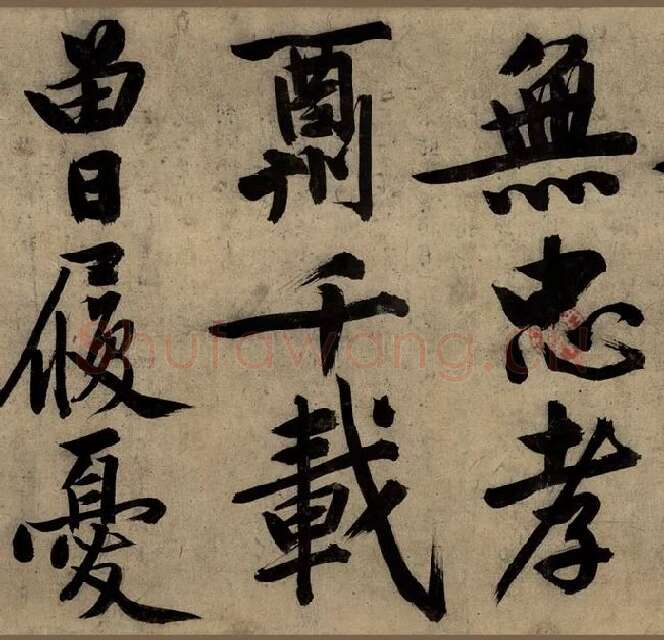 無忠孝
千載
曾履憂
Shufawang.cn